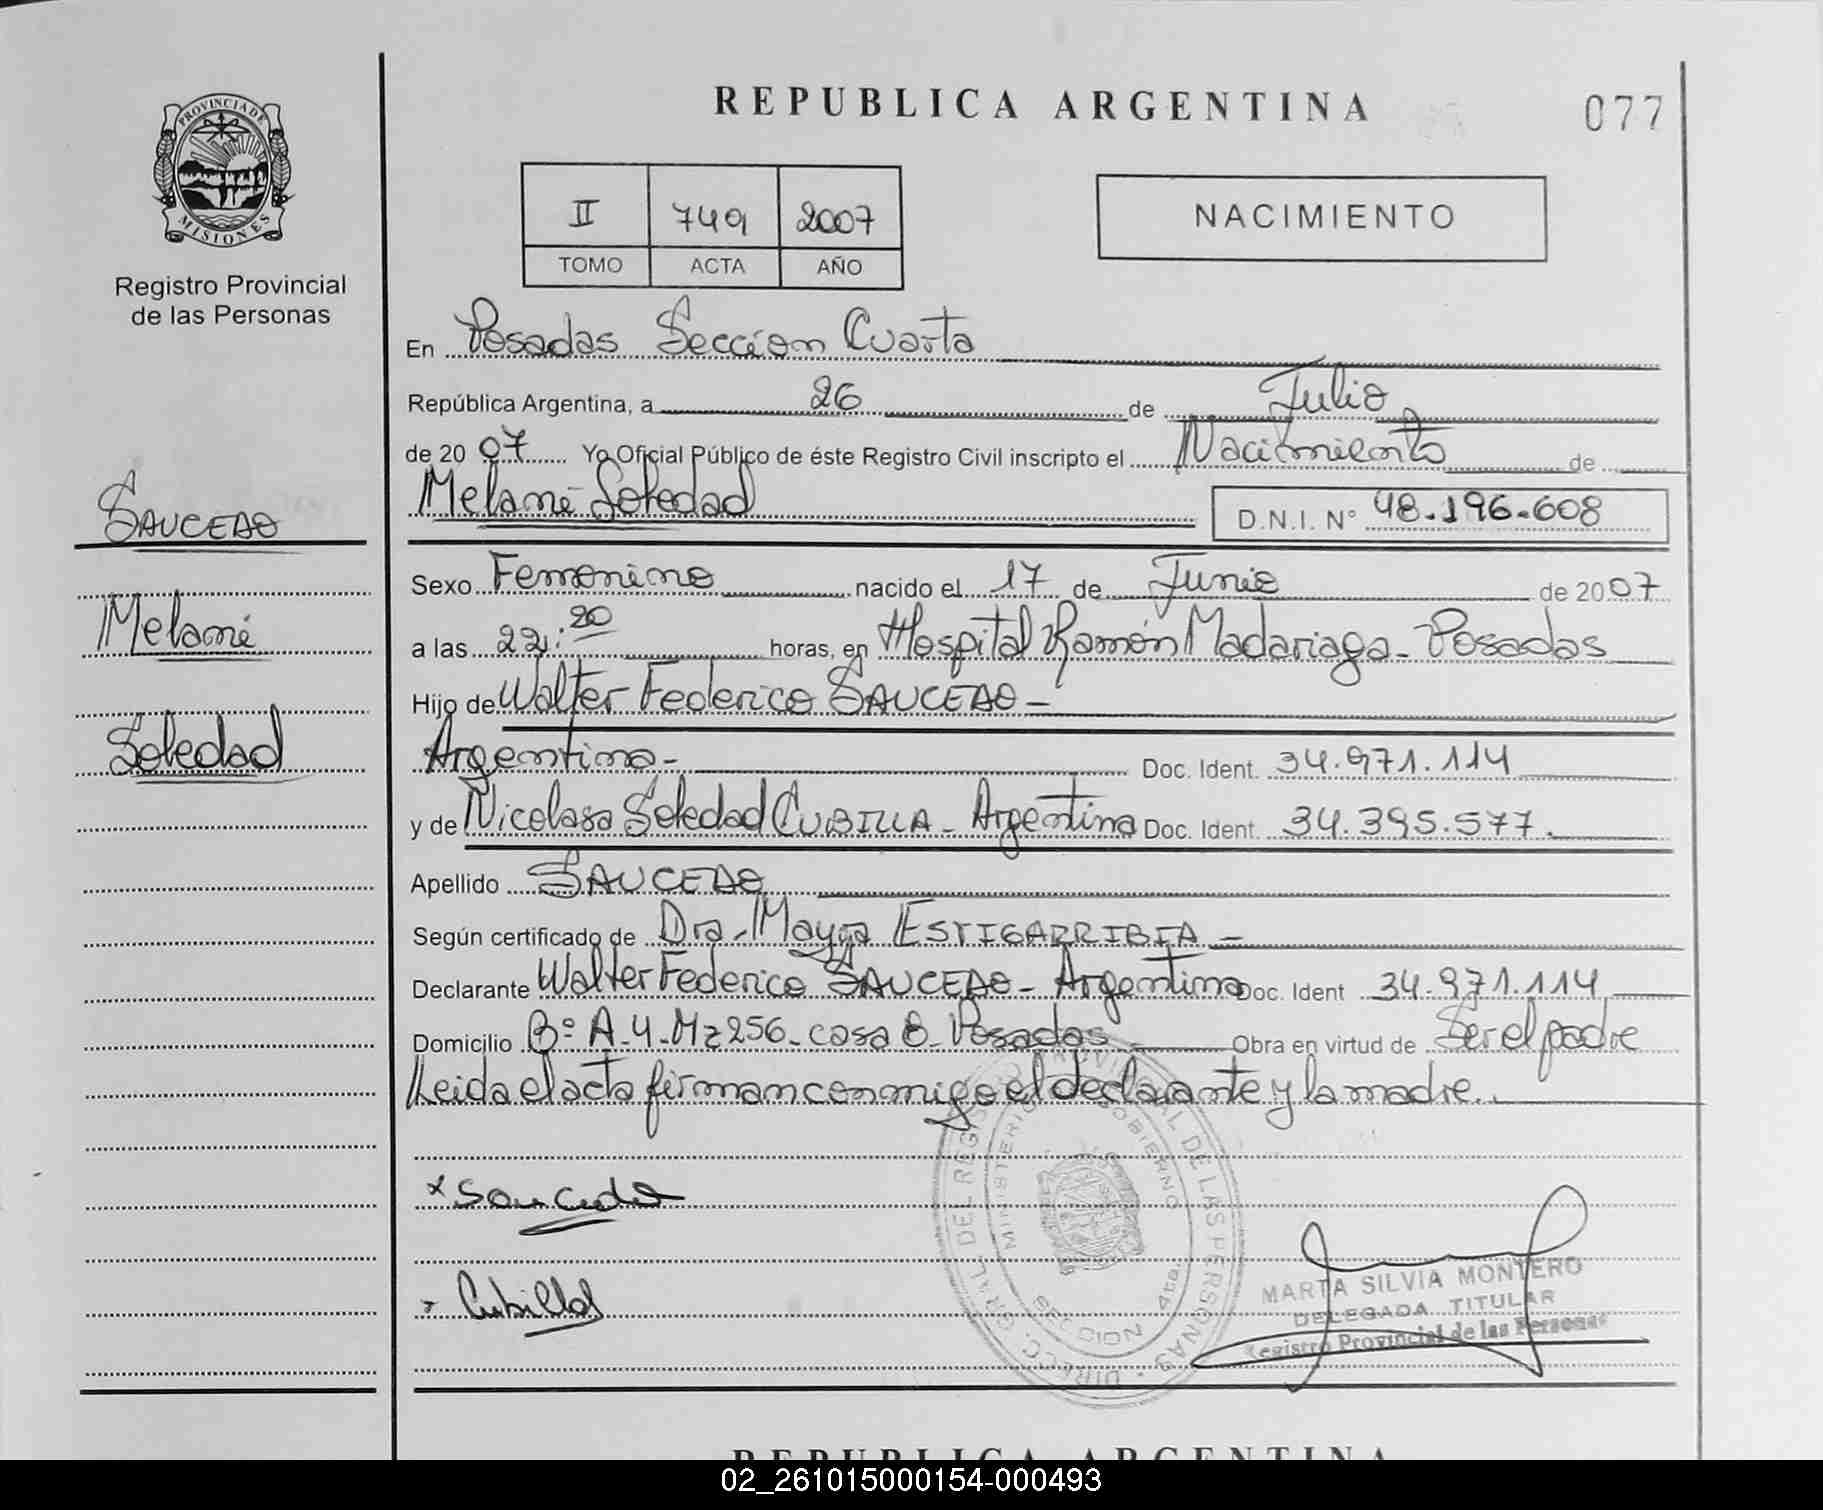 REPUBLICA ARGENTINA
077
PROVINCIA DE MISIONES
Registro Provincial
de las Personas
II 749 2007
TOMO ACTA AÑO
NACIMIENTO
En Posadas Sección Cuarta
República Argentina, a 26 de Julio
de 2007 Yo Oficial Público de éste Registro Civil inscripto el Nacimiento de
Melani Soledad D.N.I. N° 48.196.608
SAUCEDO
Melani
Soledad
Sexo Femenino nacido el 17 de Junio de 2007
a las 22:20 horas, en Hospital Ramón Madariaga - Posadas
Hijo de Walter Federico SAUCEDO -
Argentino - Doc. Ident. 34.971.114
y de Nicolasa Soledad CUBILLA - Argentina Doc. Ident. 34.395.577.
Apellido SAUCEDO
Según certificado de Dra. Mayra ESTIGARRIBIA -
Declarante Walter Federico SAUCEDO - Argentino Doc. Ident 34.971.114
Domicilio B° A-4-Mz 256-casa 8-Posadas Obra en virtud de Ser el padre
Leida el acta firman conmigo el declarante y la madre.
x Saucedo
x Cubilla
DIRECC. GRAL. DEL REGISTRO PROVINCIAL DE LAS PERSONAS
MINISTERIO GOBIERNO
SECCION 4ta.
MARTA SILVIA MONTERO
DELEGADA TITULAR
Registro Provincial de las Personas
REPUBLICA ARGENTINA
02_261015000154-000493